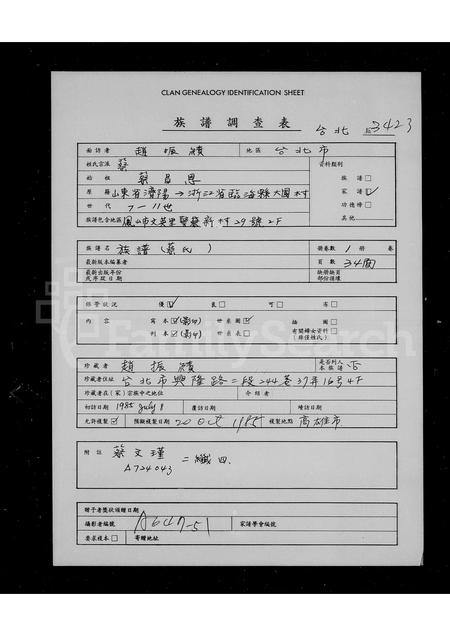 CLAN GENEALOGY IDENTIFICATION SHEET
族譜調查表 台北 3423
面訪者 趙振績 地區 台北市
姓氏宗派 蔡 資料類別
始祖 蔡昌恩 族譜□
原籍 山東省濟陽→浙江省臨海縣大園村 家譜☑
世代 7-11世 功德榜□
族譜包含地區 鳳山市文英里 新村29號2F 其他
族譜名 族譜(蔡氏) 冊卷數 1 冊 卷
最新版本編纂者 頁數 34
最新出版年份
或序跋日期 缺冊缺頁
部份損壞
保管狀況 優☑ 良□ 可□ 劣□
內容 寫本☑(影印) 世系圖☑ 插圖□
刊本□(影印) 世系表□ 有關婦女資料□
(非僅姓氏)
珍藏者 趙振績 是否列入
本族譜 否
珍藏者住址 台北市興隆路二段244巷37弄16号4F
珍藏者在(家)宗族中之地位 介紹者
初訪日期 1985 July 8 覆訪日期 續訪日期
允許複製☑ 預擬複製日期 20 Oct 1985 複製地點 高雄市
附註 蔡文瑾
A724043 = 四.
贈予者獎狀頒贈日期
攝影者編號 A647-51 家譜學會編號
要求複本□ 寄贈地址
FamilySearch